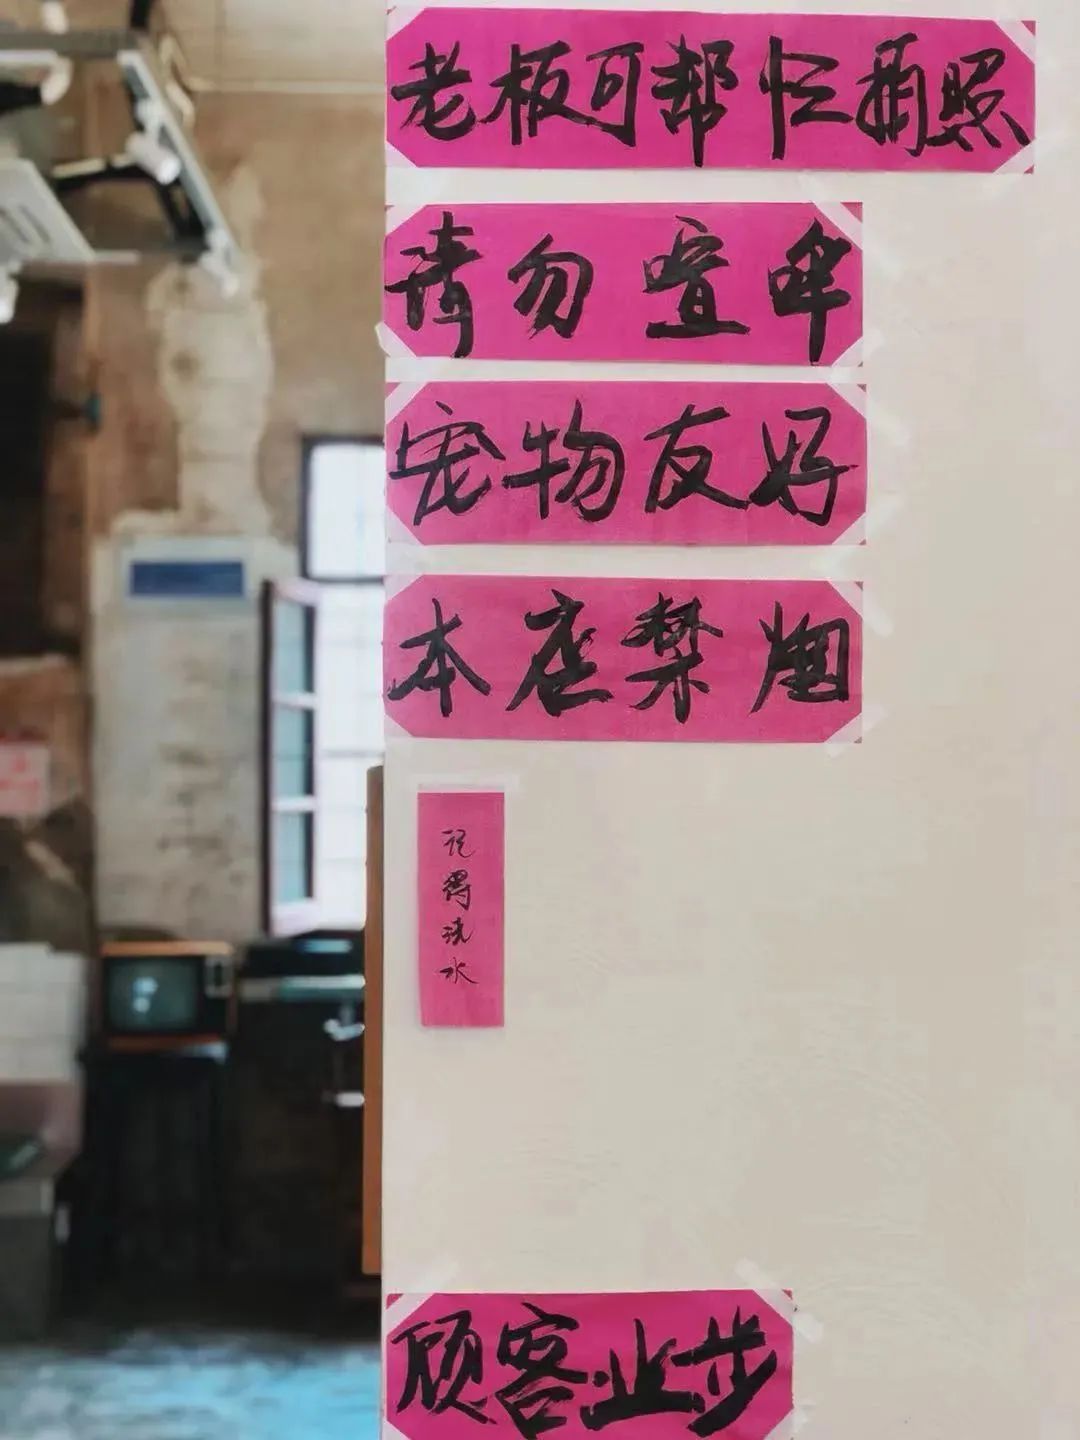 老板可帮忙拍照
请勿喧哗
宠物友好
本店禁烟
记得冲水
顾客止步